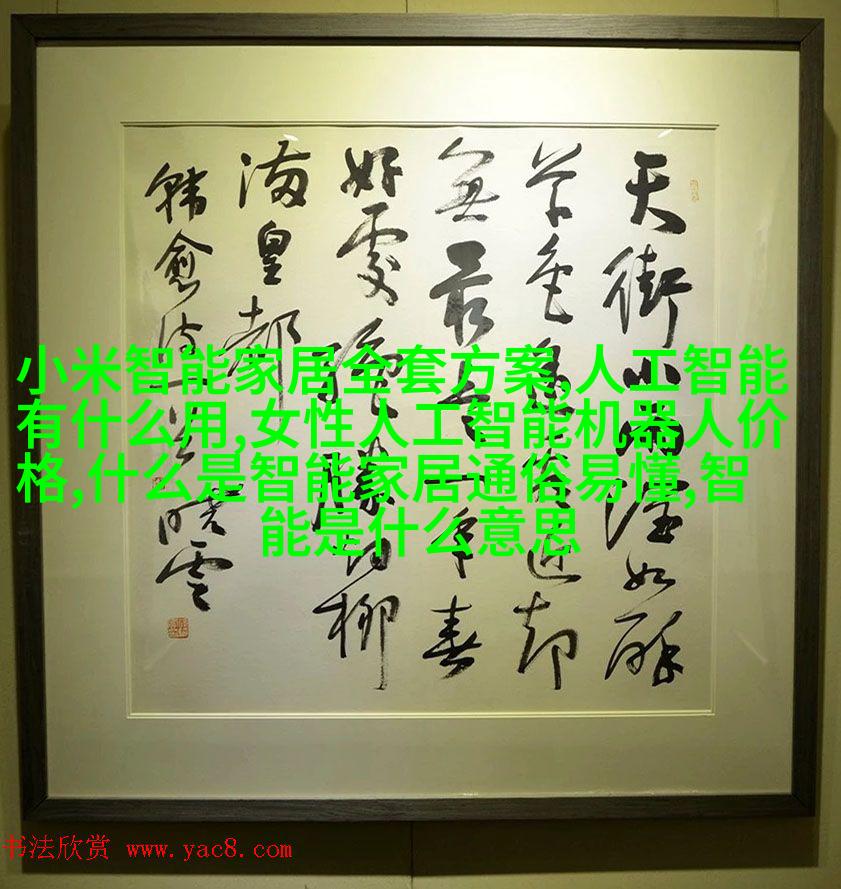 天街小雨潤如酥
草色遥看近却
無最是一年春
好處絶勝烟柳
满皇都
韓愈诗 晓雲
小米智能家居全套方案,人工智能
有什么用,女性人工智能机器人价
格,什么是智能家居通俗易懂,智
能是什么意思
书法欣赏 www.yac8.com